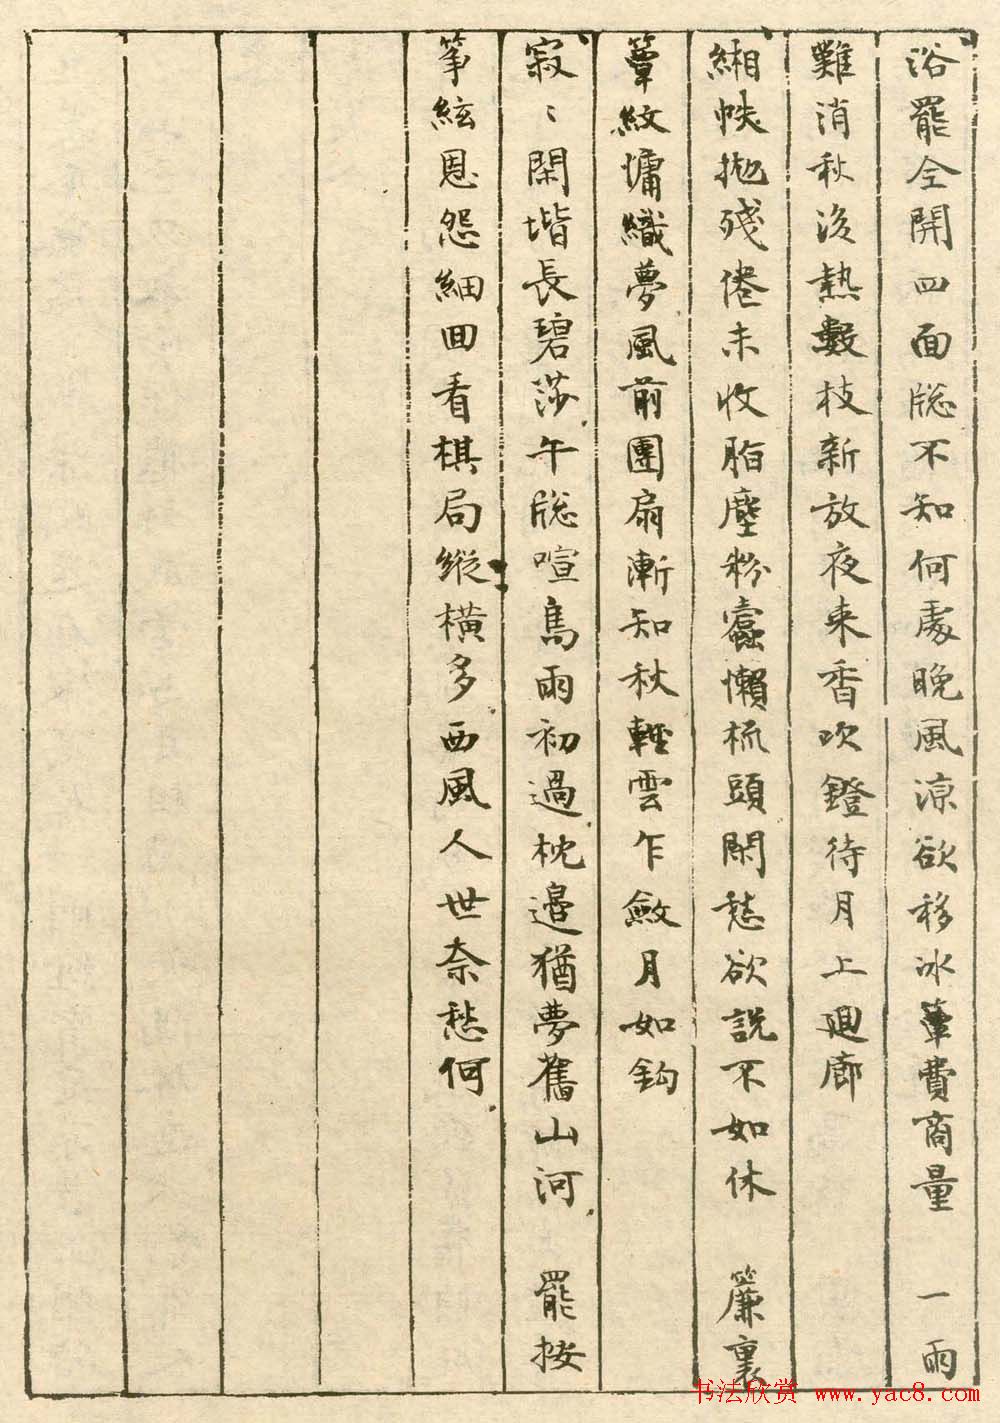 浴罷全開四面牎不知何處晚風涼欲移冰簟費商量　一雨
難消秋後熱數枝新放夜來香吹鐙待月上迴廊
緗帙拋殘倦未收胎塵粉蠹懶梳頭閑愁欲說不如休　簾裏
簟紋慵織夢風前團扇漸知秋輕雲乍斂月如鈎
寂〻閑堦長碧莎午牎喧鳥雨初過枕邊猶夢舊山河　罷按
筝絃恩怨細回看棋局縱橫多西風人世奈愁何
书法欣赏 www.yac8.com